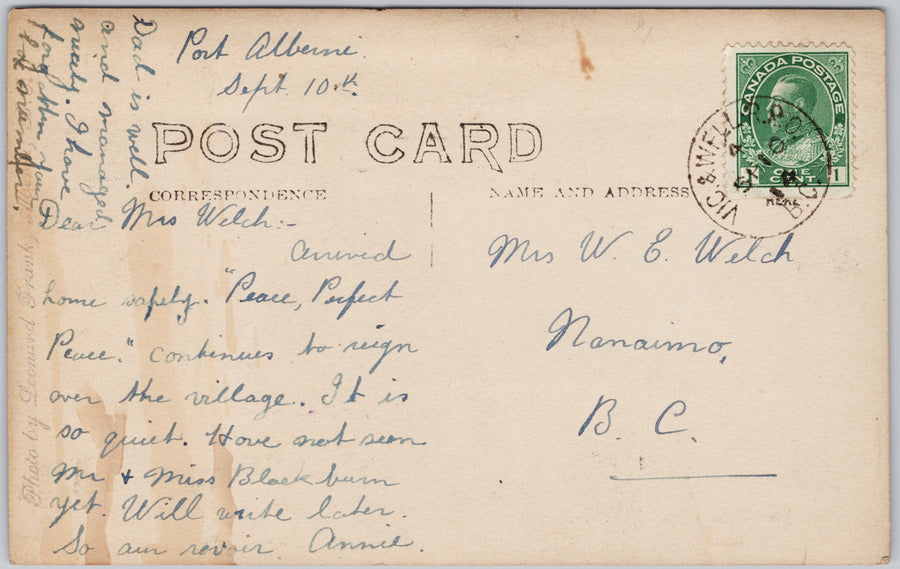 Port Alberni
Sept. 10th.
POST CARD
CORRESPONDENCE
NAME AND ADDRESS
HERE
Dear Mrs Welch:-
arrived
home safely. "Peace, Perfect
Peace." continues to reign
over the village. It is
so quiet. Have not seen
Mr + Miss Blackburn
yet. Will write later.
So aur revoir. Annie.
Dad is well.
and managed
nicely. I have
your
Mrs W. E. Welch
Nanaimo,
B. C.
CANADA POSTAGE
ONE
CENT
1
VIC. & WELL. R.P.O.
B.C.
10
Photo by Leonard Frank,